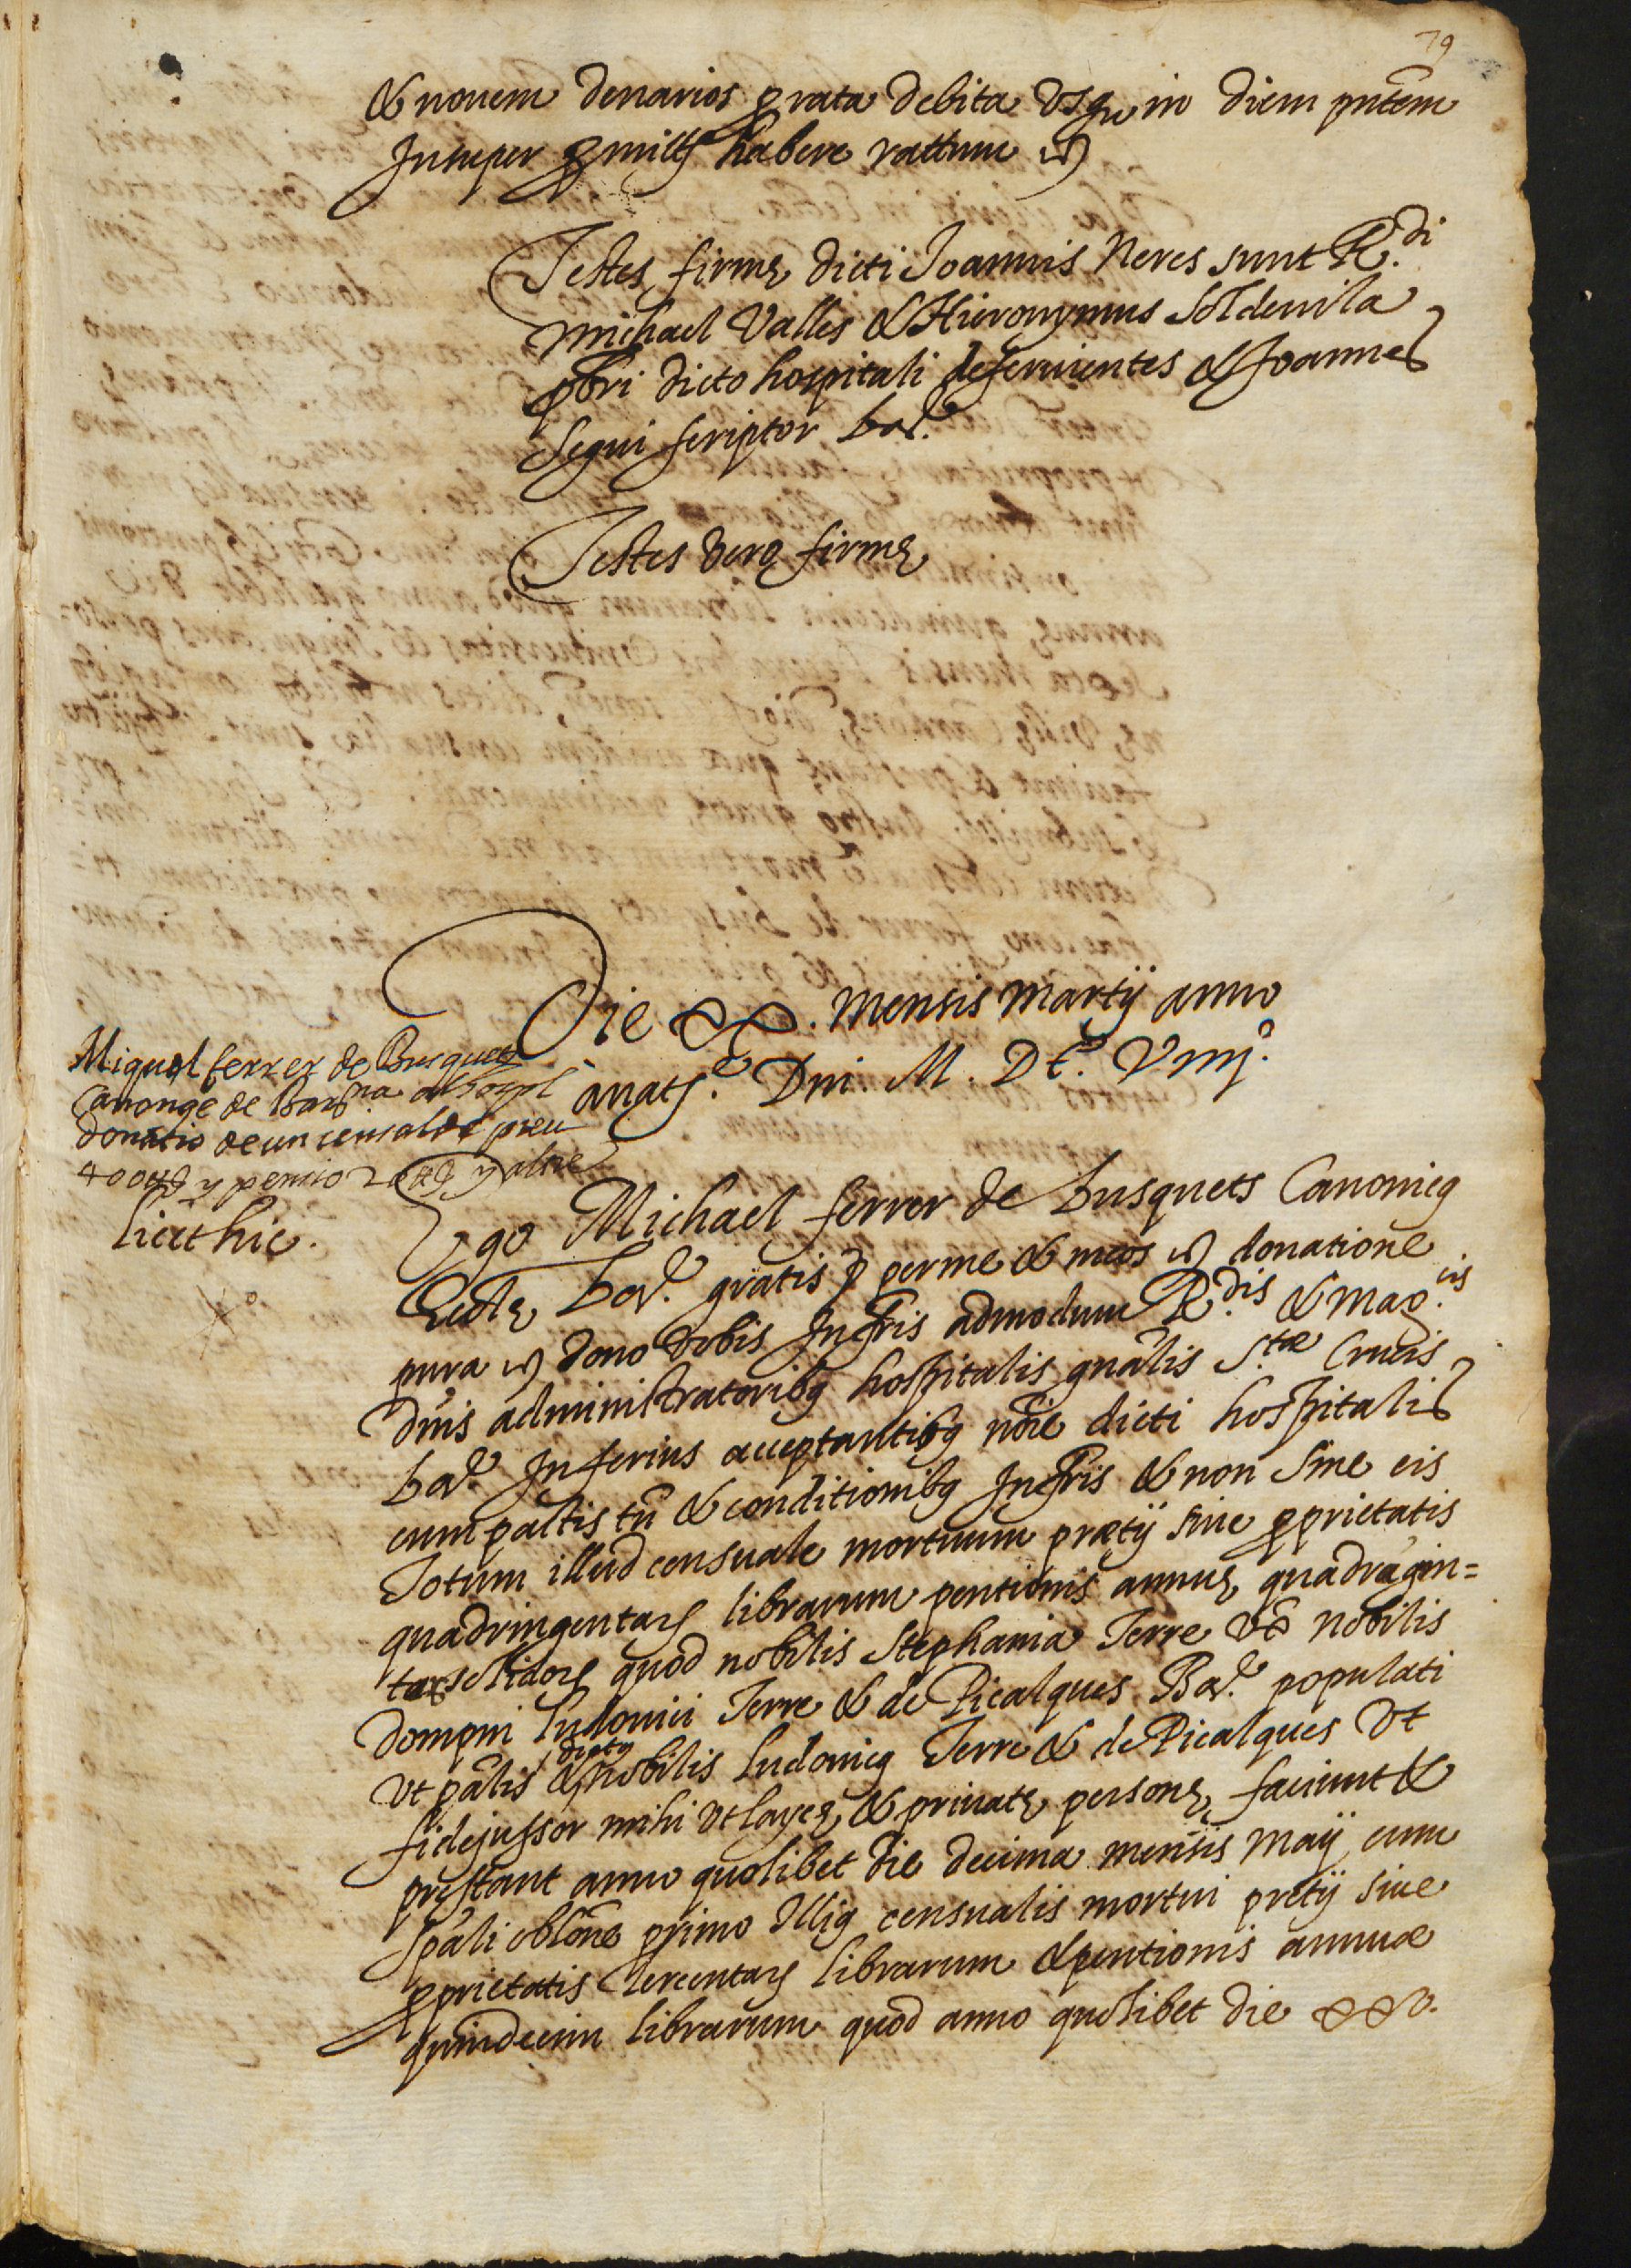 79
& nouem denarios p rata debita vsq in diem pntem
Insuper pmitto habere rattum &c
Testes firmę dicti Joannis Neres sunt R.di
Michael Valles & Hieronymus Soldeuila
pbri dicto hospitali deseruientes & Joannes
Segui scriptor bar.
Testes vero firmę
Die xx. mensis martij anno
a natt.e Dni. M. D C. Viiij.
Miquel ferrer de Busquets
Canonge de Barna al hospl
donatio de un censal de preu
400 ll y pensio 20 ll y altre
licet hic.
Ego Michael ferrer de busquets Canonicq
Ecclę bar. gratis & per me & meos &c donatione
pura &c dono vobis Infris admodum R.dis & mag.cis
dnis administratoribq hospitalis gnalis S.tae Crucis
bar. Inferius acceptantibq noie dicti hospitalis
cum pactis tn & conditionibq Infris & non sine eis
Totum illud censuale mortuum praetij siue pprietatis
quadringentarz librarum pentionis annuę quadragin=
ta solidorz quod nobilis Stephania Terre vx nobilis
dompni ludouici Terre & de Picalques Bar. populati
vt palis & dictq nobilis ludouicq Terre & de Picalques vt
fidejussor mihi vt laycę & priuatę personę faciunt &
pręstant anno quolibet die decima mensis maij cum
spali oblone primo Illiq censualis mortui pretij siue
pprietatis Tercentarz librarum & pentionis annuae
quindecim librarum quod anno quolibet die xxv.